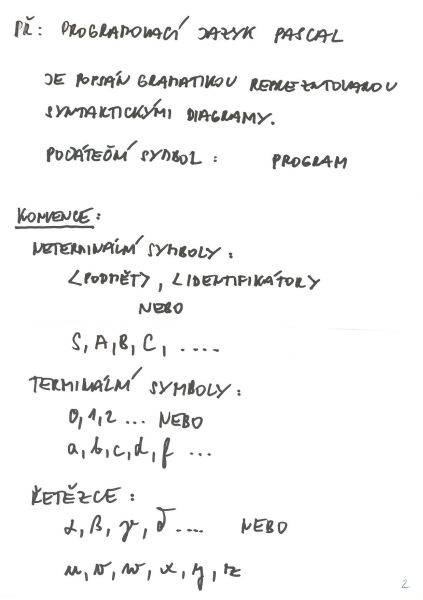 PŘ: PROGRAMOVACÍ JAZYK PASCAL
JE POPSÁN GRAMATIKOU REPREZNTOVANOU
SYNTAKTICKÝMI DIAGRAMY.
POČÁTEČNÍ SYMBOL : PROGRAM
KONVENCE:
NETERMINÁLNÍ SYMBOLY:
<PODMĚT>, <IDENTIFIKÁTORY
NEBO
S, A, B, C, ....
TERMINÁLNÍ SYMBOLY:
0, 1, 2 ... NEBO
a, b, c, d, f ...
ŘETĚZCE :
α, β, γ, δ .... NEBO
u, v, w, x, y, z
2